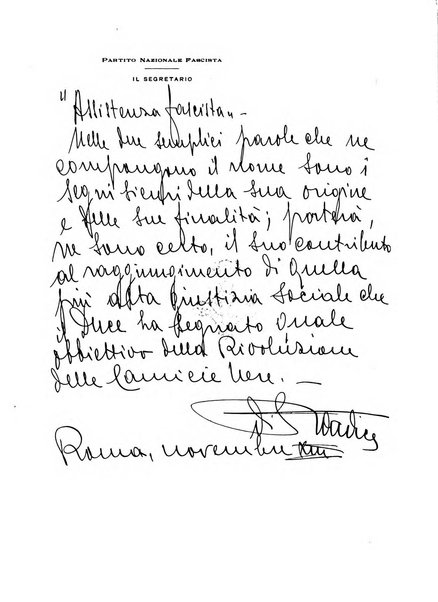 PARTITO NAZIONALE FASCISTA
IL SEGRETARIO
"Assistenza fascista" -
Nelle due semplici parole che ne
compongono il nome sono i
segni sicuri della sua origine
e delle sue finalità; porterà,
ne sono certo, il suo contributo
al raggiungimento di quella
più alta giustizia sociale che
il Duce ha segnato quale
obbiettivo della Rivoluzione
delle Camicie Nere. -
Roma, novembre XIII